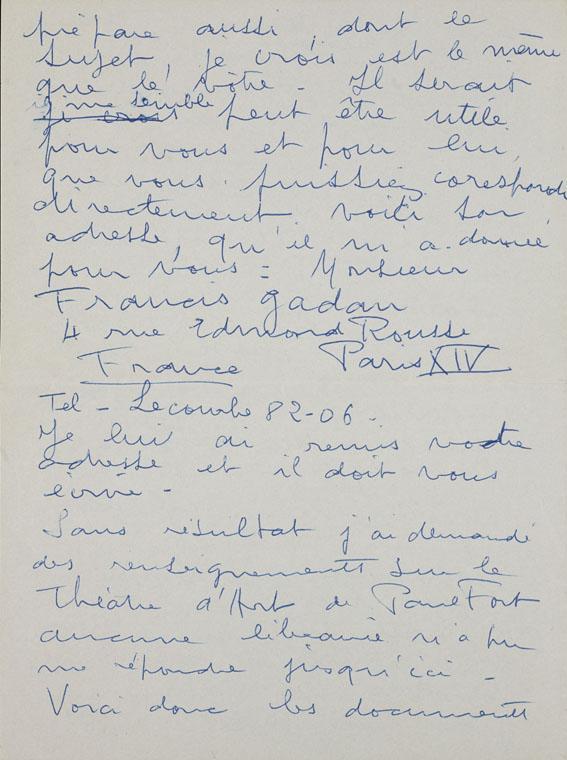 prépare aussi, dont le
sujet, je crois est le même
que le vôtre - Il serait
il me semble
je crois peut être utile
pour vous et pour lui,
que vous puissiez corespondre
directement. voici son
adresse, qu'il m'a donnée
pour vous = Monsieur
Francis Gadan
4 rue Edmond Rousse
France Paris XIV
Tel - Lecourbe 82-06.
Je lui ai remis votre
adresse et il doit vous
écrire -
Sans résultat j'ai demandé
des renseignements sur le
Théâtre d'Art de Paul Fort
aucune librairie n'a pu
me répondre jusqu'ici -
Voici donc les documents